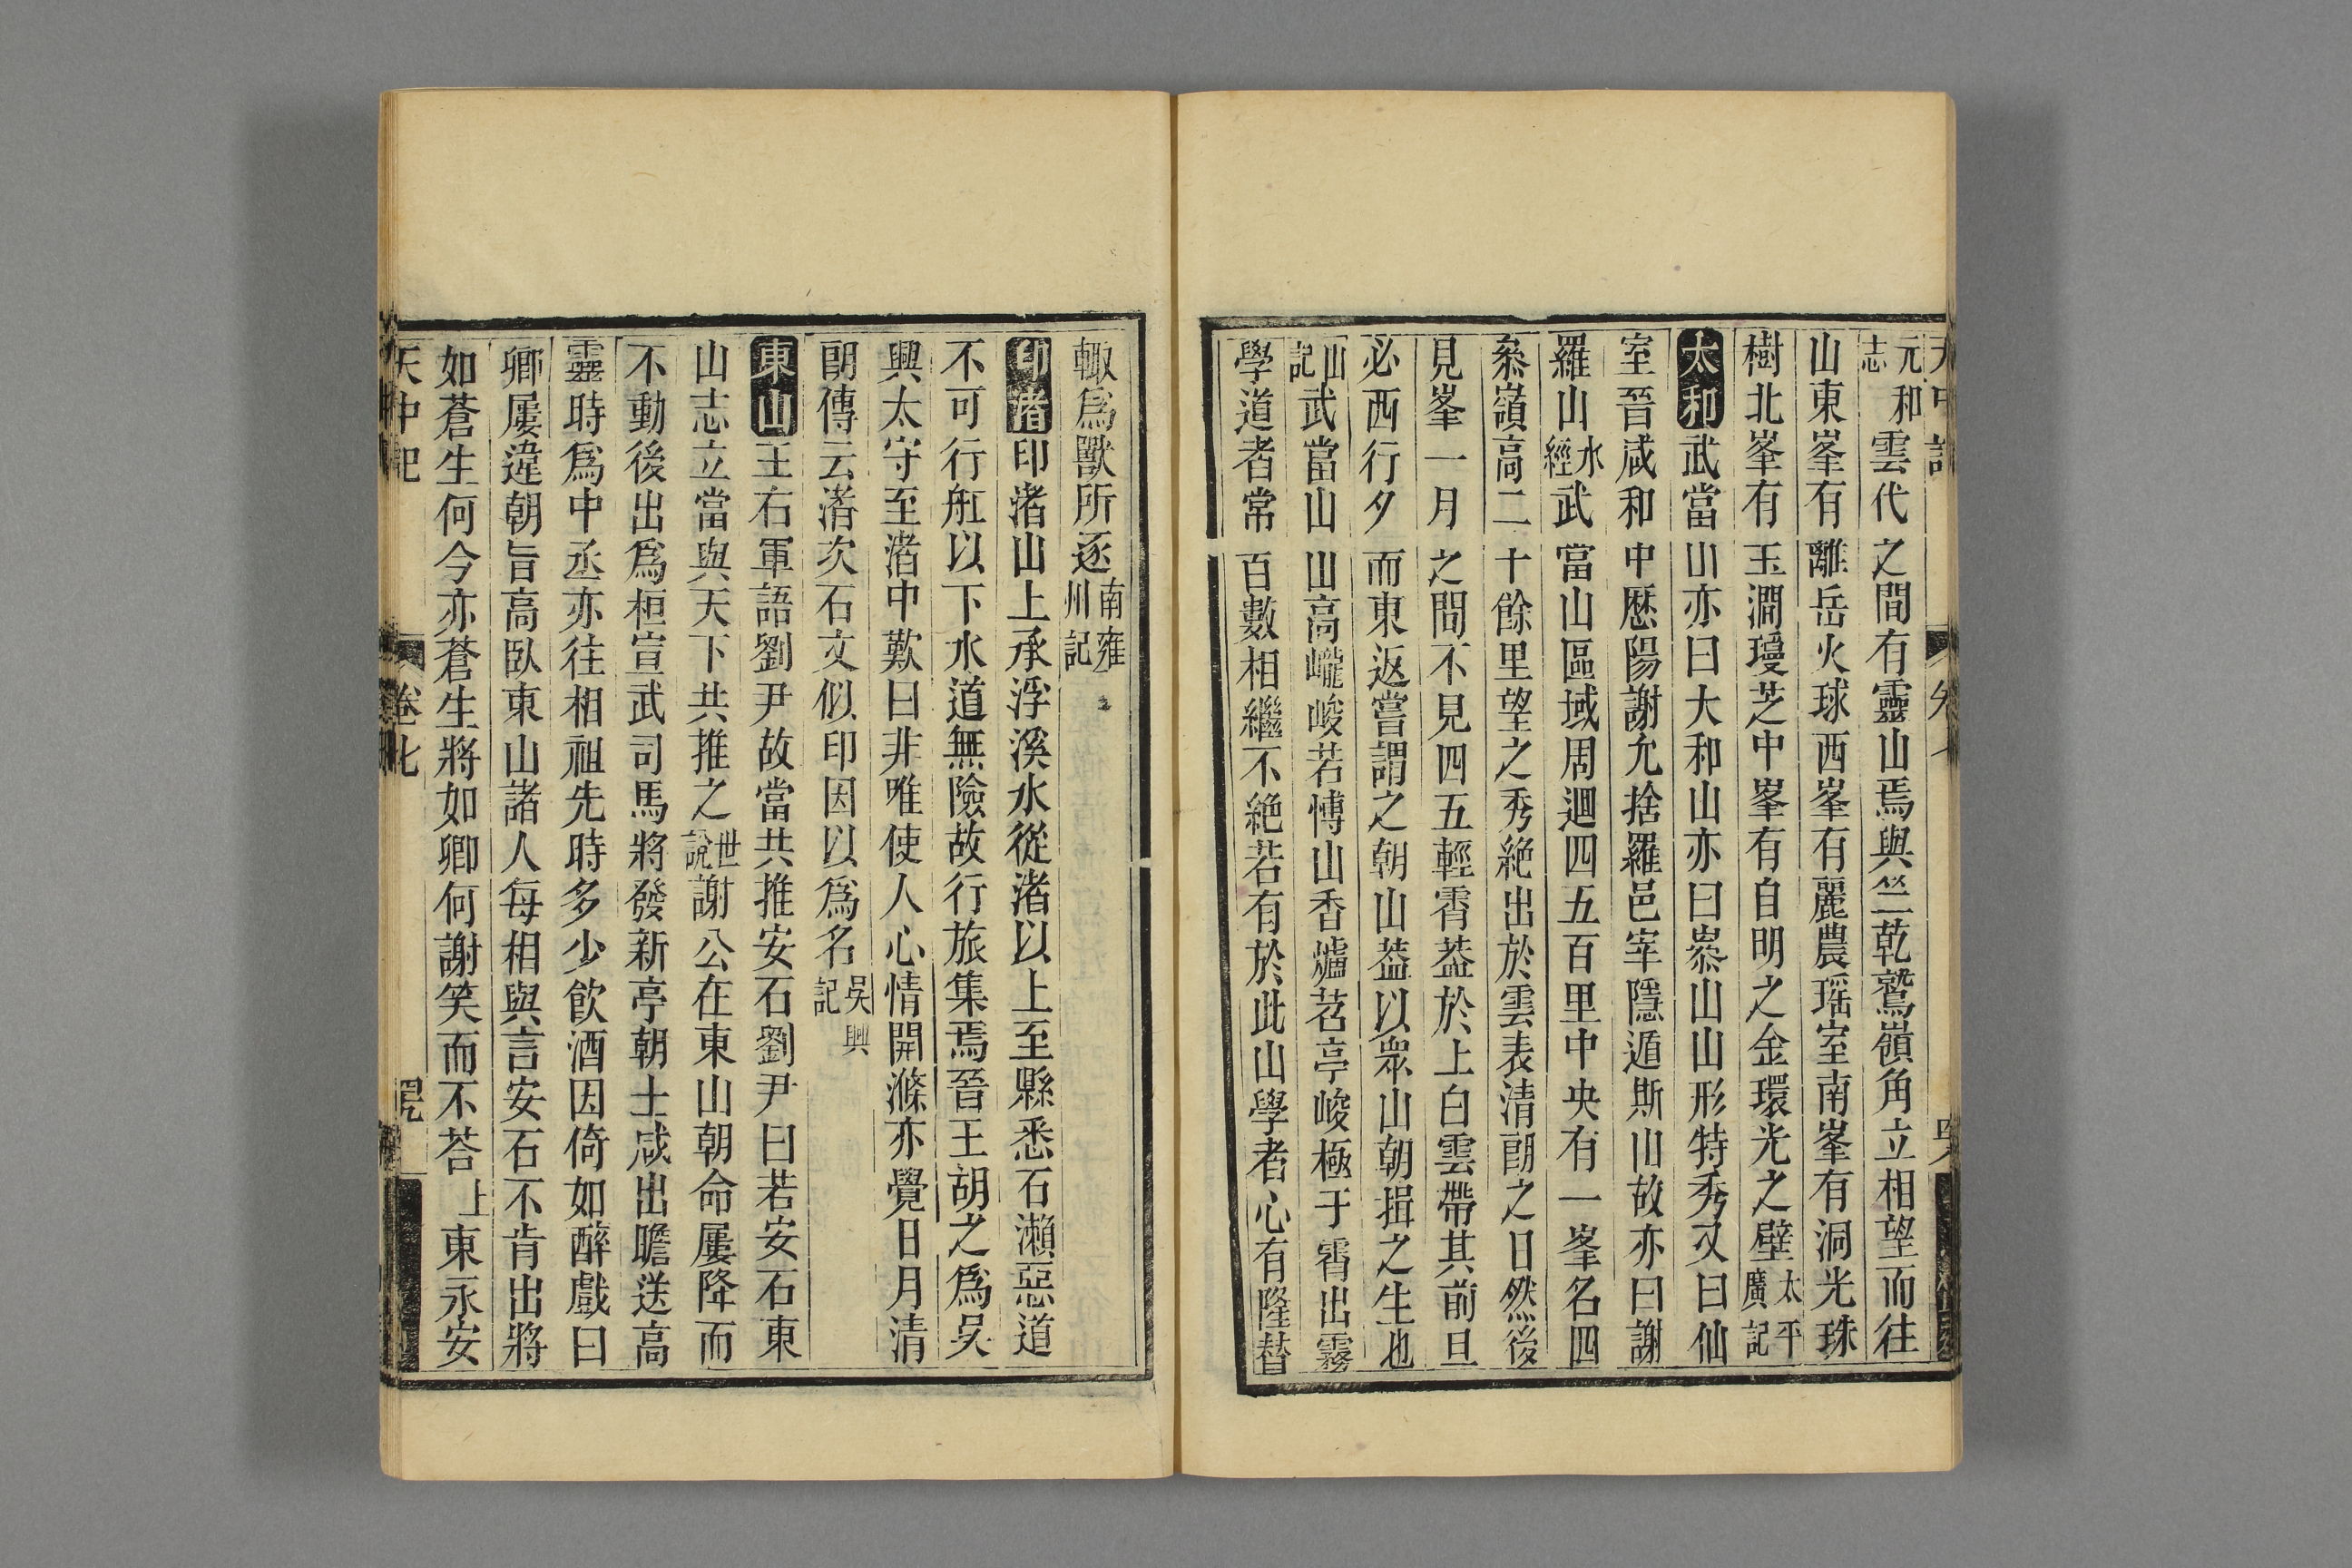 元和志雲代之間有靈山焉與竺乾鷲嶺角立相望而往
山東峯有離岳火球西峯有麗農瑶室南峯有洞光珠
樹北峯有玉澗瓊芝中峯有自明之金環光之壁太平廣記
太和武當山亦曰大和山亦曰嵾山山形特秀又曰仙
室晉咸和中歷陽謝允捨羅邑宰隱遁斯山故亦曰謝
羅山水經武當山區域周迴四五百里中央有一峯名四
叅嶺高二十餘里望之秀絶出於雲表清朗之日然後
見峯一月之間不見四五輕霄葢於上白雲帶其前旦
必西行夕而東返嘗謂之朝山葢以衆山朝揖之生也
山記武當山山高巃峻若愽山香爐苕亭峻極于霄出霧
學道者常百數相繼不絶若有於此山學者心有隆替
輙爲獸所逐南雍州記
印渚印渚山上承浮溪水從渚以上至縣悉石瀨惡道
不可行舡以下水道無險故行旅集焉晉王胡之爲吳
興太守至渚中歎曰非唯使人心情開滌亦覺日月清
朗傳云渚次石文似印因以爲名吳興記
東山王右軍語劉尹故當共推安石劉尹曰若安石東
山志立當與天下共推之世說謝公在東山朝命屢降而
不動後出爲桓宣武司馬將發新亭朝士咸出瞻送高
靈時爲中丞亦往相祖先時多少飲酒因倚如醉戲曰
卿屢違朝旨高臥東山諸人每相與言安石不肯出將
如蒼生何今亦蒼生將如卿何謝笑而不荅上東永安
天中記
卷七